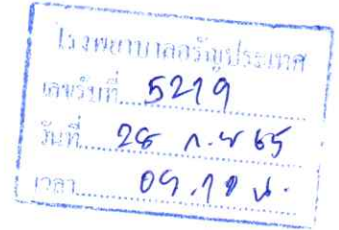 โรงพยาบาลอรัญประเทศ
เลขรับที่ 5219
วันที่ 28 ก.พ 65
เวลา 09.19 น.